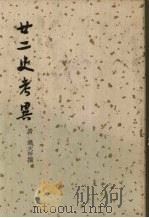 廿二史考異
清 錢大昕撰